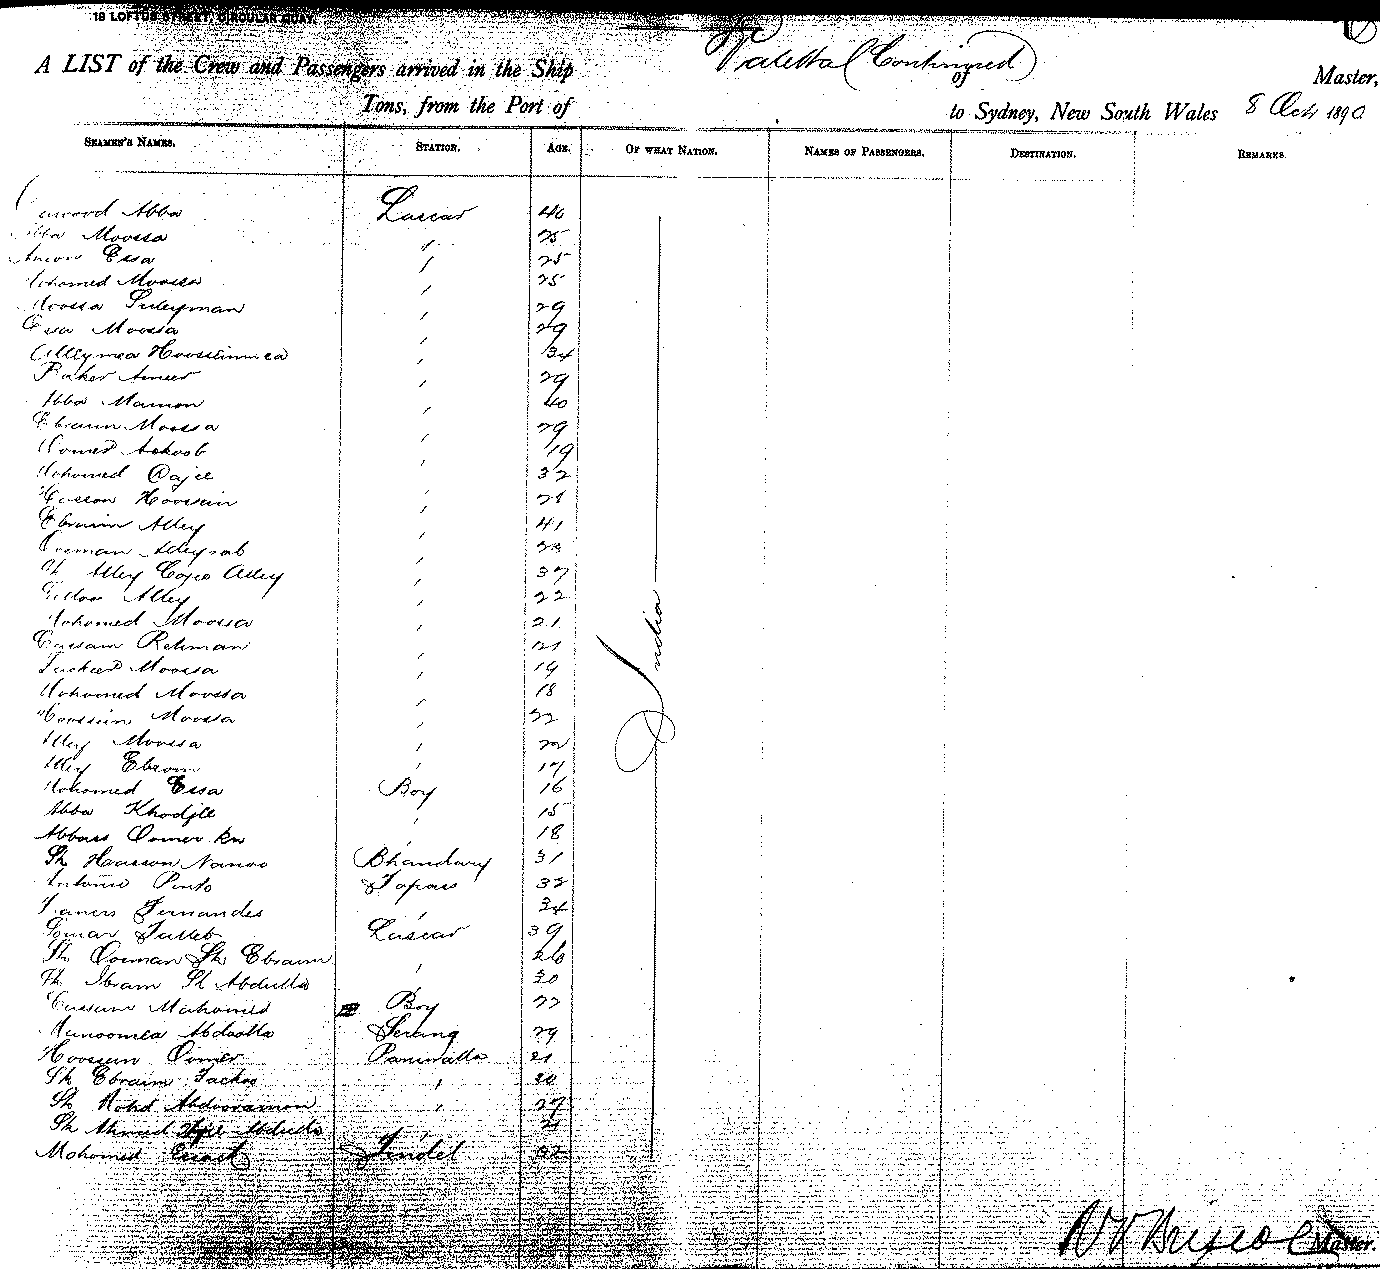 18 LOFTUS STREET, CIRCULAR QUAY.
A LIST of the Crew and Passengers arrived in the Ship Valetta (Continued) of Master,
Tons, from the Port of to Sydney, New South Wales 8 Oct 1890
SEAMEN'S NAMES. STATION. AGE. OF WHAT NATION. NAMES OF PASSENGERS. DESTINATION. REMARKS.
Abba Lascar 40
Moossa " 25
Essa " 25
Mohomed Moossa " 25
Moossa Suleyman " 29
Essa Moossa " 29
Alleymea Hoosseinmea " 34
Baker Ameer " 29
Abba Mamon " 40
Ebraim Moossa " 29
" 19
Mohomed " 32
Hasson Hoossein " 21
Ebraim Alley " 41
Oosman Alleysab "
Alley Cajee Alley " 37
Alley " 22
Mohomed Moossa " 21
Cassam Rehman " 21
Moossa " 19
Mohomed Moossa " 18
Hoossein Moossa " 22
Alley Moossa " 22
Alley Ebram " 17
Mohomed Essa Boy 16
Abba Khodjee " 15
Abbass Oomer " 18
Sk Hoosson Nanoo Bhandary 31
Antonio Pinto Topass 32
Francis Fernandes " 34
Lascar 39
Sk Oosman Sk Ebraim 26
Sk Ibram Sk Abdulla " 30
Cassum Mahomed Boy 22
Abdoolla Serang 29
Hoossein Oomer Paniwalla 21
Sk Ebraim 20
Sk Mohd Abdooramon " 27
Sk Ahmed Abdulla " 21
Mohomed Tindel 32
India
Master.